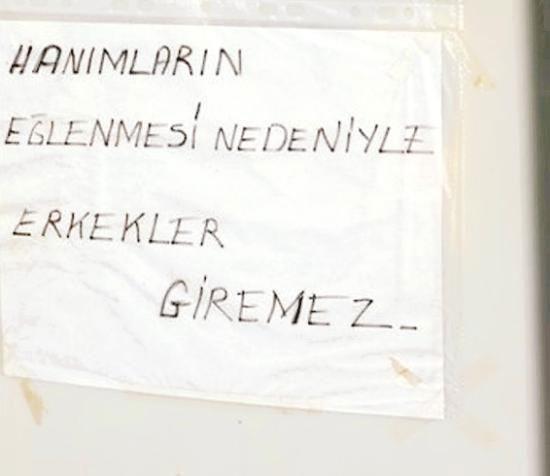 HANIMLARIN
EĞLENMESİ NEDENİYLE
ERKEKLER
GİREMEZ_